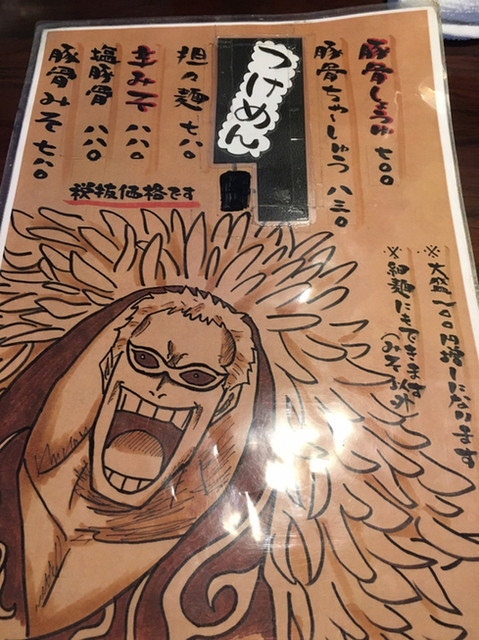 豚骨しょうゆ 七〇〇
豚骨ちゃーしゅう 八三〇
つけめん
担々麺 七八〇
辛みそ 八八〇
塩豚骨 八八〇
豚骨みそ 七八〇
税抜価格です
※大盛100円増しになります
※細麺にもできます
(みそ以外)